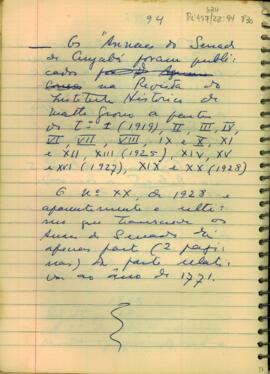 94
Os "Annaes do Senado
de Cuyabá foram publi-
cados
na Revista do
Instituto Histórico de
Matto Grosso a partir
do T.º I (1919), II, III, IV,
VI, VII, VIII, IX e X, XI
e XII, XIII (1925), XIV, XV
e XVI (1927), XIX e XX (1928)
O n.º XX, de 1928 e
aparentemente o ulti-
mo que transcreve os
Anaes do Senado dá
apenas parte (2 pagi-
nas) da parte relati-
va ao ano de 1771.